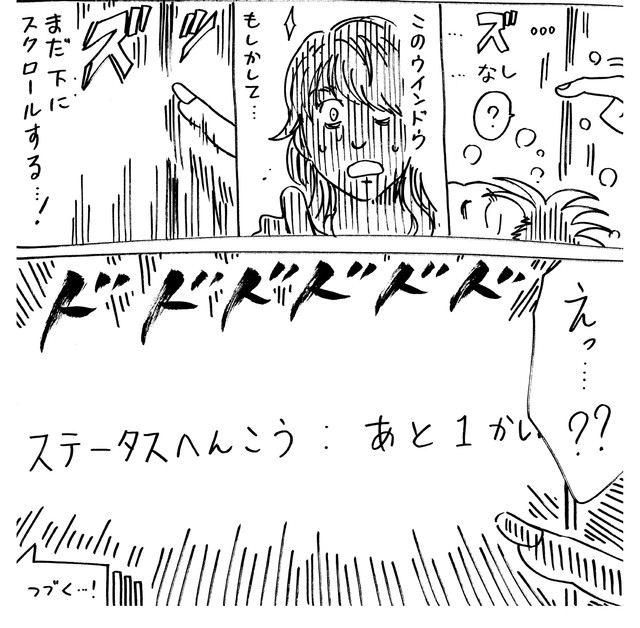 …ズ…
…なし
？
？
？
このウインドウ
もしかして…
ズッ
まだ下に
スクロールする…！
えっ……??
ズズズズズズ
ステータスへんこう：あと1かい
つづく…！